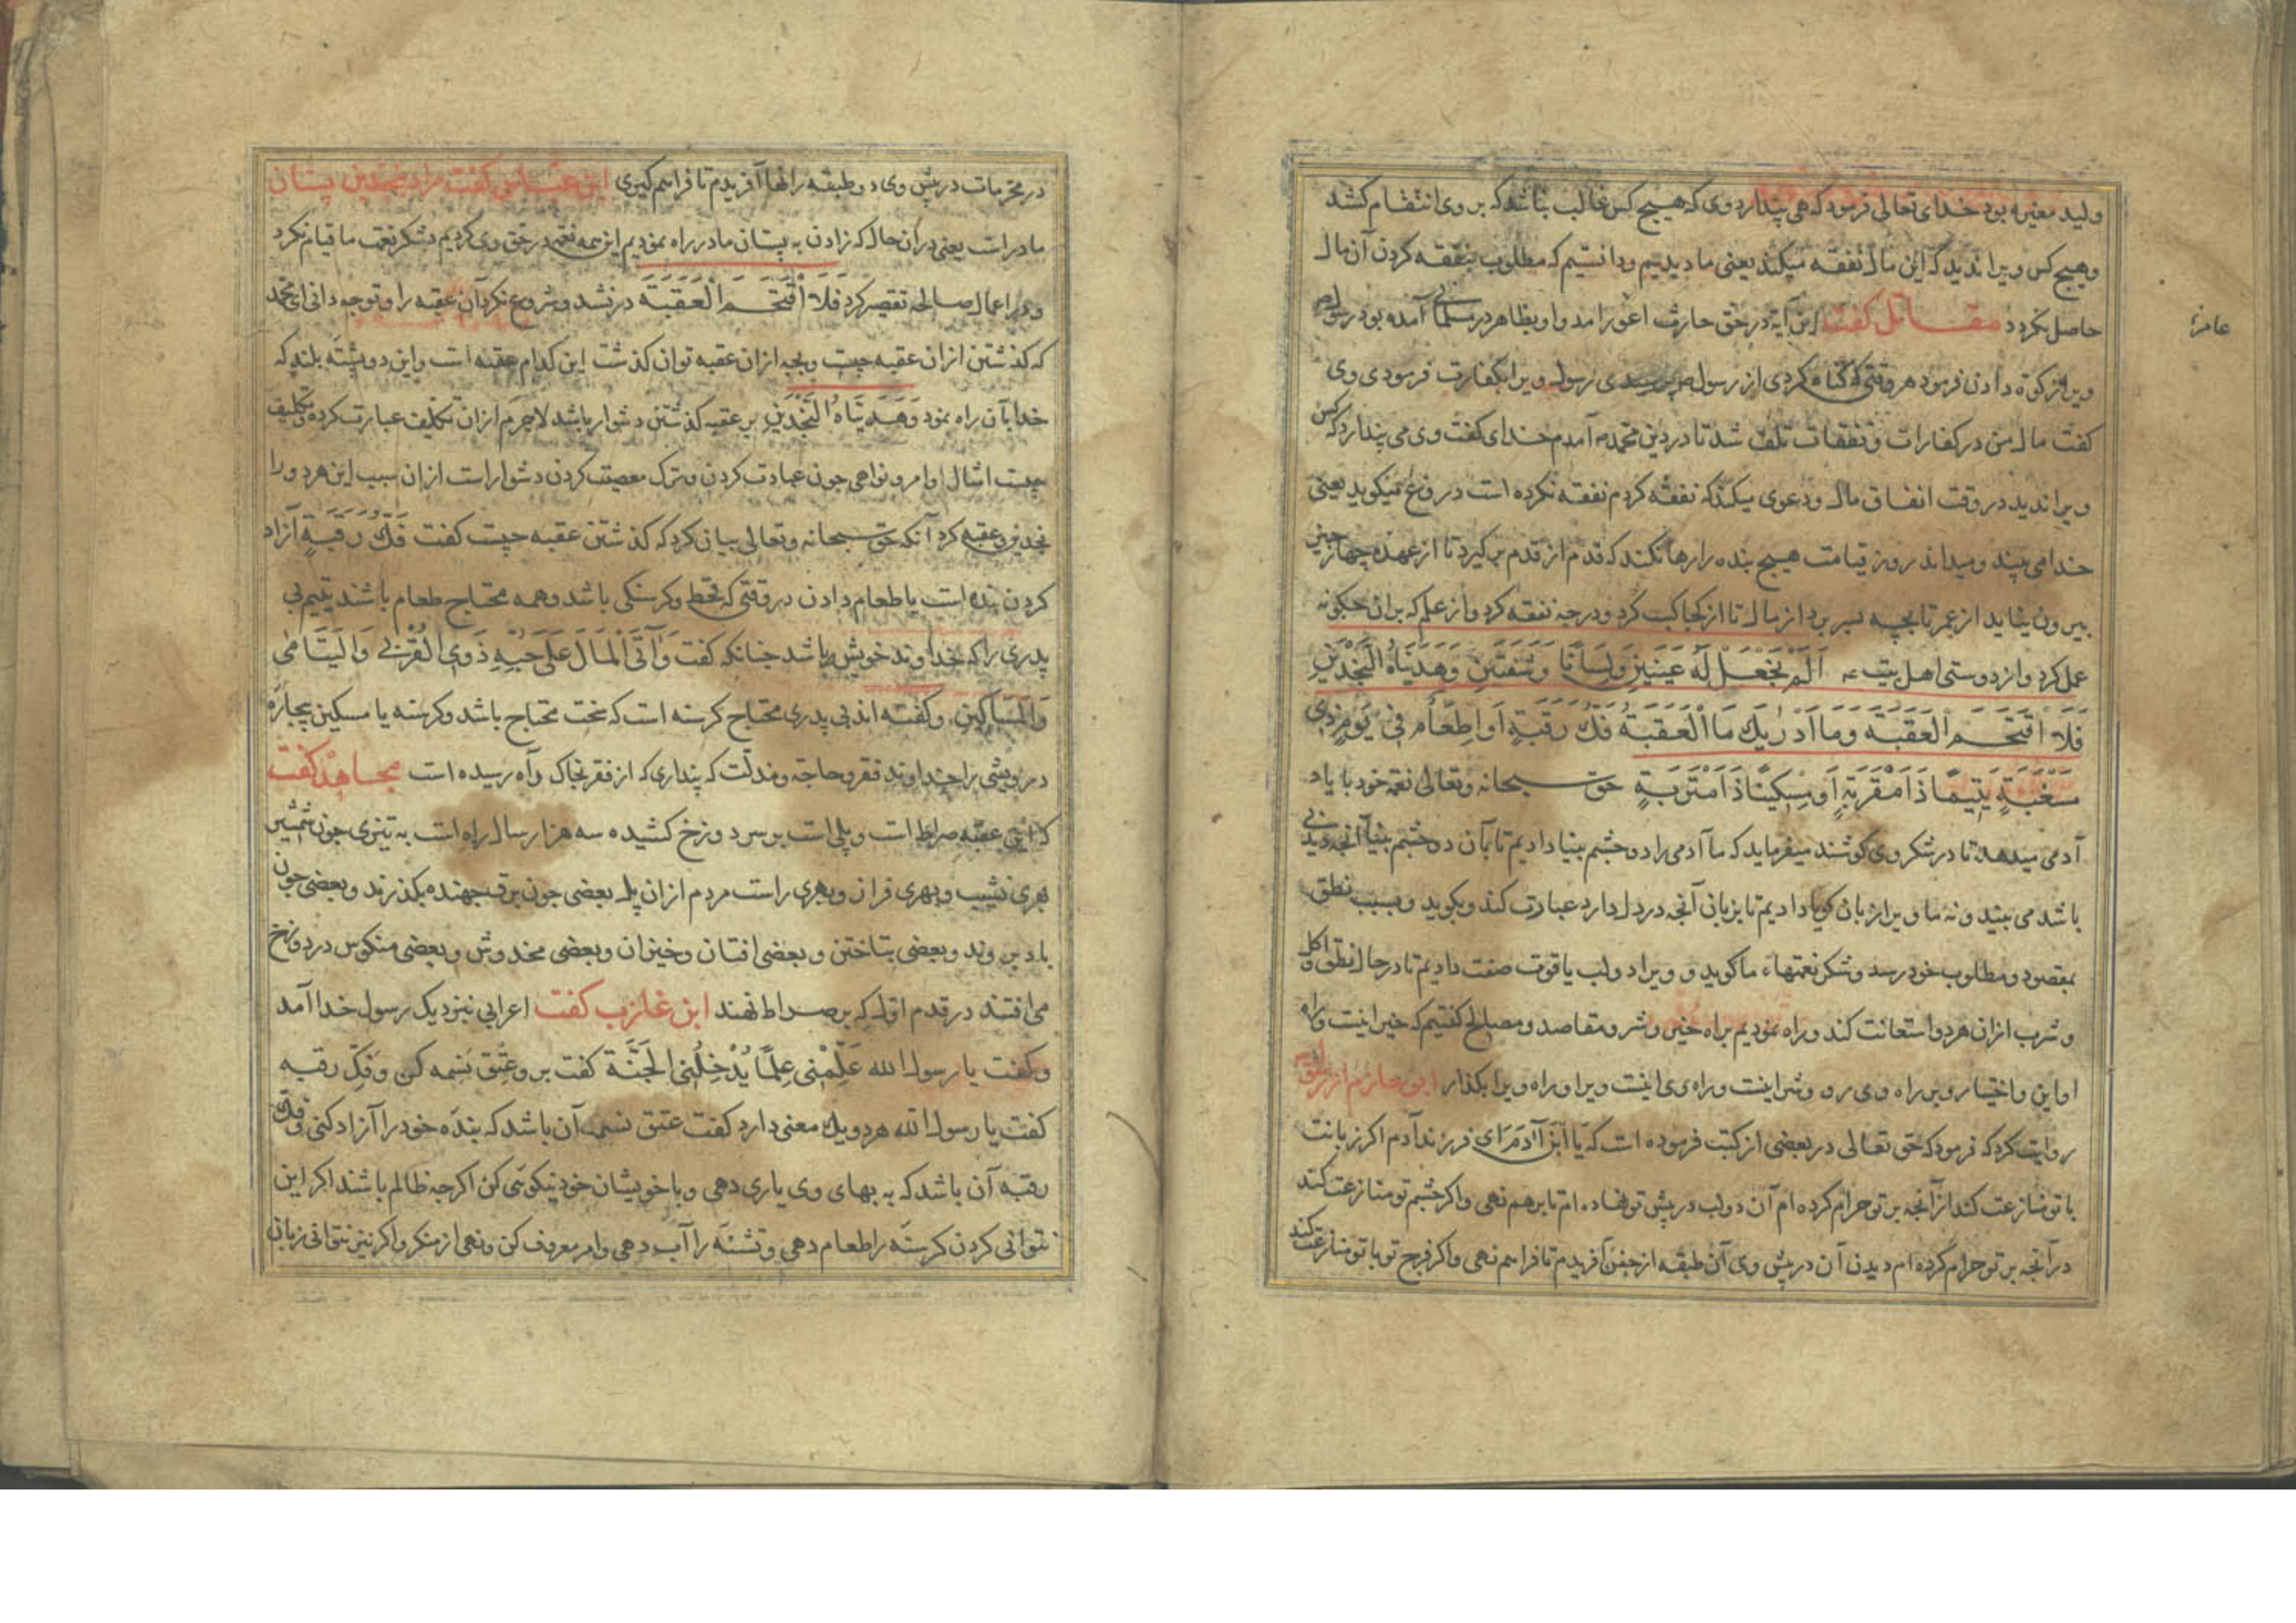 ولید مغیره بود خدای تعالی فرمود که می پندارد وی که هیچ کس غالب نباشد که بر وی انتقام کشد
وهیچ کس ویرا ندید که این مال نفقه میکند یعنی ما دیدیم ودانستیم که مطلوب بنفقه کردن آن مال
حاصل نکرد مقاتل کفت این آیة در حق حارث اعور امد واو بظاهر در مسلمانی آمده بود رسول ص
عامر
ویرا زکوة دادن فرمود هر وقتی که کناه کردی از رسول ص پرسیدی رسول ویرا بکفارت فرمودی وی
کفت مال من در کفارات ونفقات تلف شد تا در دین محمد آمدم خدای کفت وی می پندارد که کس
ویرا ندید در وقت انفاق مال ودعوی میکند که نفقه کردم نفقه نکرده است دروغ میکوید یعنی
خدا می بیند ومیداند روز قیامت هیچ بنده را رها نکنند که قدم از قدم برکیرد تا از عهده چهار چیز
بیرون نیاید از عمر تا بچه بسر برد از مال تا از کجا کسب کرد ودر چه نفقه کرد واز علم که بران چکونه
عمل کرد واز دوستی اهل بیت ع اَلَمْ نَجْعَلْ لَهُ عَيْنَيْنِ وَلِسَانًا وَشَفَتَيْنِ وَهَدَيْنَاهُ النَّجْدَيْنِ
فَلَا اقْتَحَمَ الْعَقَبَةَ وَمَا اَدْرٰيكَ مَا الْعَقَبَةُ فَكُّ رَقَبَةٍ اَو اِطْعَامٌ فِي يَوْمٍ ذِي
مَسْغَبَةٍ يَتِيمًا ذَا مَقْرَبَةٍ اَوْ مِسْكِينًا ذَا مَتْرَبَةٍ حق سبحانه وتعالی نعمة خود با یاد
آدمی میدهد تا در شکر وی کوشند میفرماید که ما آدمی را دو چشم بینا دادیم تا بآن دو چشم بینا آنچه دیدنی
باشد می بیند ونه ما ویرا زبان کویا دادیم تا بزبانی آنچه در دل دارد عبارت کند وبکوید وبسبب نطق
بمقصود ومطلوب خود رسد وشکر نعمتهاء ما کوید و ویرا دو لب با قوت صفت دادیم تا در حال نطق واکل
وشرب ازان هر دو استعانت کند وراه نمودیم براه خیر وشر ومقاصد ومصالح کفتیم که خیر اینست وراه
او این واختیار وبر راه وی رو وشر اینست وراه وی اینست ویرا وراه ویرا بکذار ابو حازم از رسول
روایت کرد که فرمود که حق تعالی در بعضی از کتب فرموده است که یَا ابْنَ آدَمَ ای فرزند آدم اکر زبانت
با تو منازعت کند از آنچه بر تو حرام کرده ام آن دو لب در پیش تو نهاده ام تا برهم نهی واکر چشم تو منازعت کند
در آنچه بر تو حرام کرده ام دیدن آن در پیش وی آن طبقه از جفن آفریدم تا فراهم نهی واکر فرج تو با تو منازعت کند
در محرمات در پیش وی دو طبقه رانها آفریدم تا فراهم کیری ابن عباس کفت مراد بنجدین پستان
مادر است یعنی در آن حال که زادن به پستان مادر راه نمودیم این همه نعمة در حق وی کردیم بشکر نعمت ما قیام نکرد
ودر اعمال صالحه تقصیر کرد فَلَا اقْتَحَمَ الْعَقَبَةَ در نشد وشروع نکرد آن عقبه را وتو چه دانی ای محمد
که کذشتن ازان عقبه چیست وبچه ازان عقبه توان کذشت این کدام عقبه است واین دو پشته بلند که
خدا بآن راه نمود وَهَدَيْنَاهُ النَّجْدَيْنِ بر عقبه کذشتن دشوار باشد لاجرم ازان تکلیف عبارت کرده وتکلیف
چیست امثال اوامر ونواهی چون عبادت کردن وترک معصیت کردن دشوار است ازان سبب این هر دو را
نجدین وعقبه کرد آنکه حق سبحانه وتعالی بیان کرد که کذشتن عقبه چیست کفت فَكُّ رَقَبَةٍ آزاد
کردن بنده است یا طعام دادن در وقتی که قحط وکرسنکی باشد وهمه محتاج طعام باشند یتیم بی
پدری را که خداوند خویش باشد چنانکه کفت وَآتَى الْمَالَ عَلَى حُبِّهِ ذَوِي الْقُرْبٰى وَالْيَتَامٰى
وَالْمَسَاكِينَ وکفته اند بی پدری محتاج کرسنه است که سخت محتاج باشد وکرسنه یا مسکین بیچاره
درویشی را خداوند فقر وحاجة ومذلت که پنداری که از فقر بخاک راه رسیده است مجاهد کفت
که این عقبه صراط است وپلی است بر سر دوزخ کشیده سه هزار سال راه است به تیزی چون شمشیر
بهری نشیب وبهری فراز وبهری راست مردم ازان پل بعضی چون برق جهنده بکذرند وبعضی چون
باد بروند وبعضی بتاختن وبعضی افتان وخیزان وبعضی مخدوش وبعضی منکوس در دوزخ
می افتند در قدم اول که بر صراط نهند ابن عازب کفت اعرابی نزدیک رسول خدا آمد
وکفت یا رسول الله عَلِّمْنِي عِلْمًا يُدْخِلُنِي الْجَنَّةَ کفت برو عِتْق نَسَمه کن وَفَكّ رقبه
کفت یا رسول الله هر دو یک معنی دارد کفت عتق نسمه آن باشد که بنده خود را آزاد کنی وفک
رقبه آن باشد که به بهای وی یاری دهی وبا خویشان خود نیکوئی کن اکرچه ظالم باشند اکر این
نتوانی کردن کرسنه را طعام دهی وتشنه را آب دهی وامر معروف کن ونهی از منکر واکر نیز نتوانی زبان